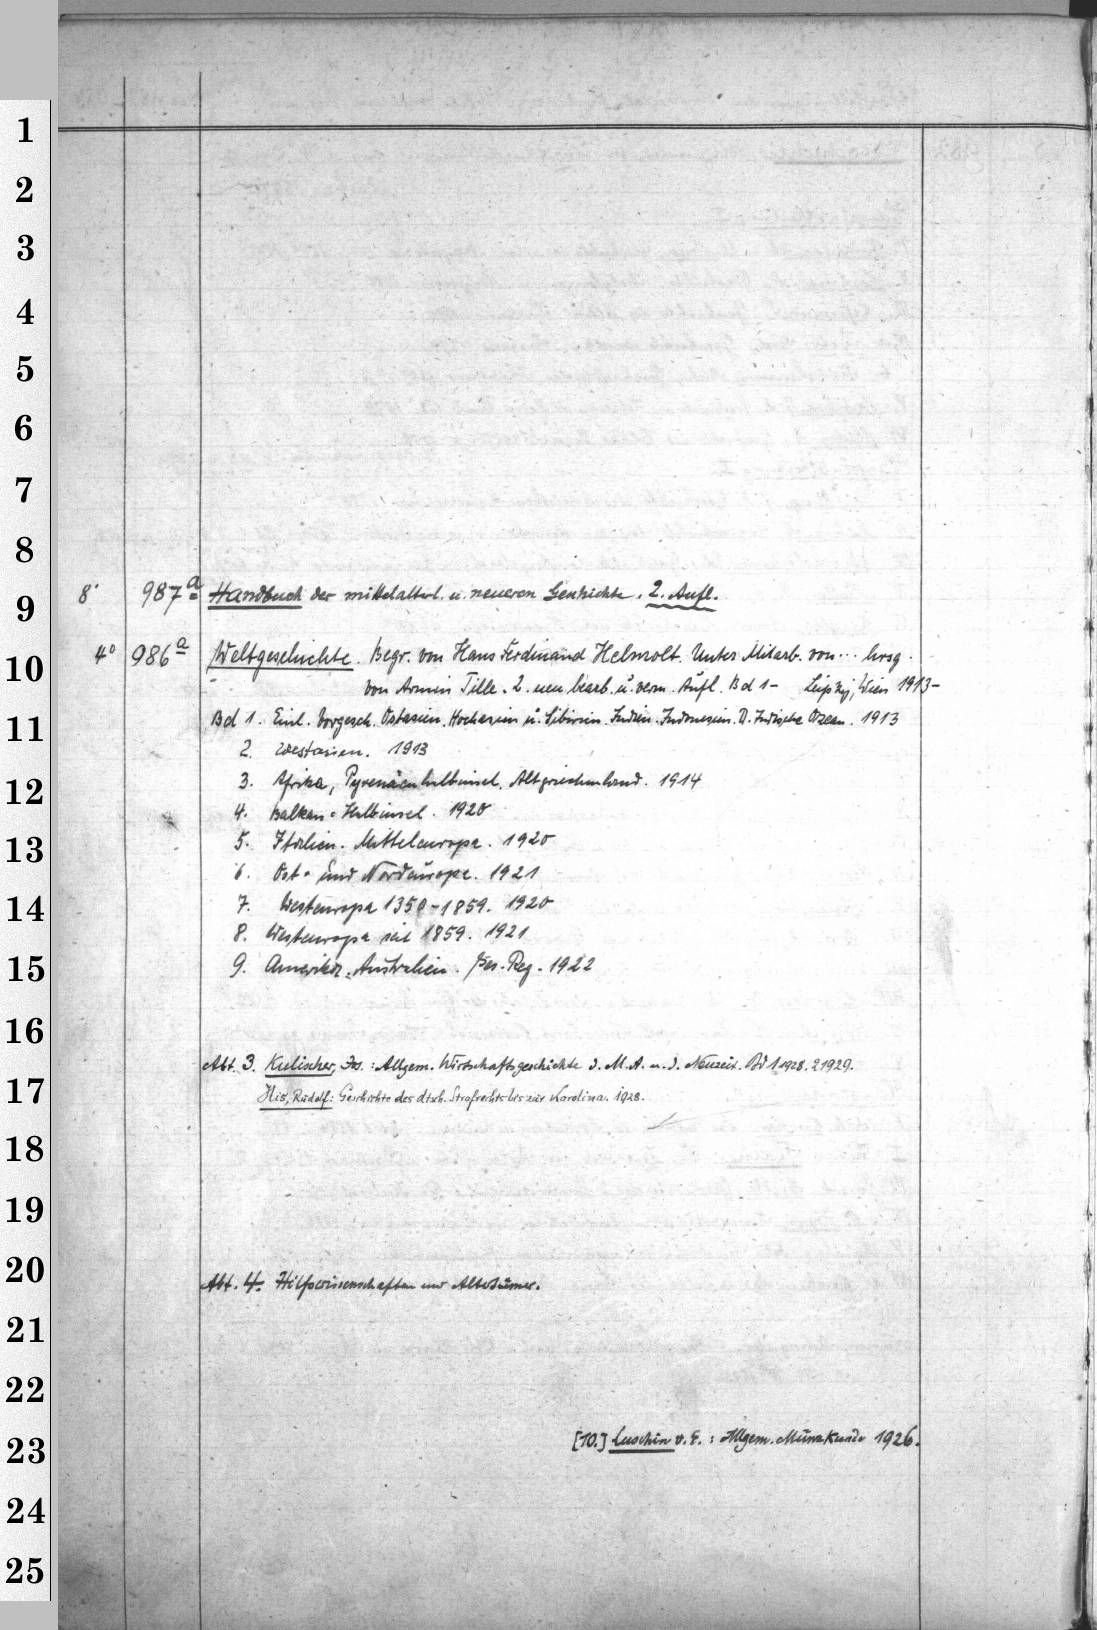 1
2
3
4
5
6
7
8
9
10
11
12
13
14
15
16
17
18
19
20
21
22
23
24
25
8° 987a Handbuch der mittelalterl. u. neueren Geschichte. 2. Aufl.
4° 986a Weltgeschichte. Begr. von Hans Ferdinand Helmolt. Unter Mitarb. von ... hrsg.
von Armin Tille. 2. neu bearb. u. verm. Aufl. Bd 1- Leipzig, Wien 1913-
Bd 1. Einl. Vorgesch. Ostasien. Hochasien u. Sibirien. Indien. Indonesien. D. Indische Ozean. 1913
2. Westasien. 1913
3. Afrika, Pyrenäenhalbinsel, Altgriechenland. 1914
4. Balkan-Halbinsel. 1920
5. Italien. Mitteleuropa. 1920
6. Ost- und Nordeuropa. 1921
7. Westeuropa 1350-1859. 1920
8. Westeuropa seit 1859. 1921
9. Amerika. Australien. Ges.-Reg. 1922
Abt. 3. Kulischer, Jos.: Allgem. Wirtschaftsgeschichte d. M.A. u. d. Neuzeit. Bd 1 1928. 2 1929.
His, Rudolf: Geschichte des dtsch. Strafrechts bis zur Karolina. 1928.
Abt. 4. Hilfswissenschaften und Altertümer.
[10.] Luschin v. E.: Allgem. Münzkunde 1926.